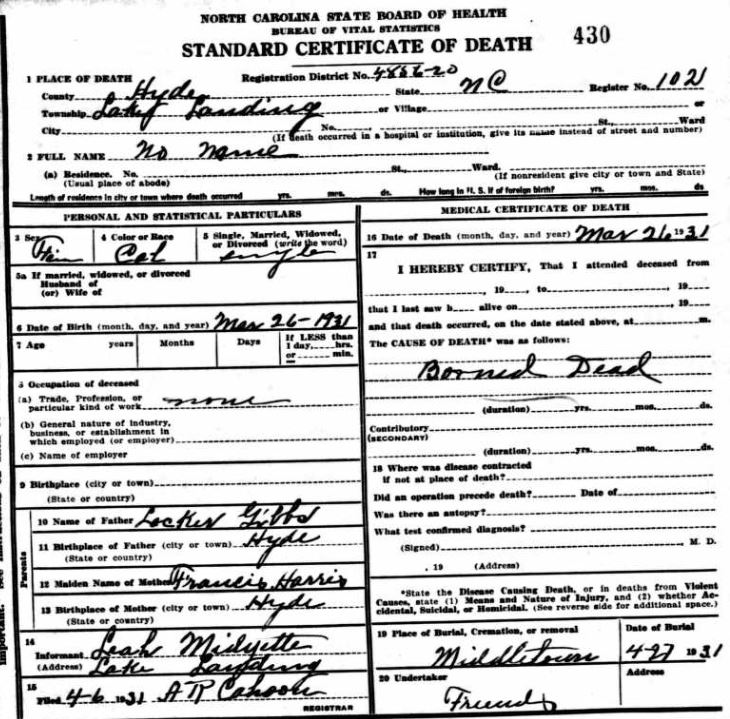 NORTH CAROLINA STATE BOARD OF HEALTH
BUREAU OF VITAL STATISTICS
STANDARD CERTIFICATE OF DEATH 430
1 PLACE OF DEATH Registration District No. 4886-20
County Hyde State NC Register No. 102
Township Lake Landing or Village or
City No. St., Ward
(If death occurred in a hospital or institution, give its name instead of street and number)
2 FULL NAME No Name
(a) Residence. No. St., Ward.
(Usual place of abode) (If nonresident give city or town and State)
Length of residence in city or town where death occurred yrs. mos. ds. How long in U. S. if of foreign birth? yrs. mos. ds
PERSONAL AND STATISTICAL PARTICULARS
3 Sex 4 Color or Race 5 Single, Married, Widowed, or Divorced (write the word)
Fem Col single
5a If married, widowed, or divorced
Husband of
(or) Wife of
6 Date of Birth (month, day, and year) Mar 26-1931
7 Age years Months Days If LESS than
1 day, hrs.
or min.
Occupation of deceased
(a) Trade, Profession, or
particular kind of work none
(b) General nature of industry,
business, or establishment in
which employed (or employer)
(c) Name of employer
9 Birthplace (city or town)
(State or country)
Parents
10 Name of Father Locker Gibbs
11 Birthplace of Father (city or town) Hyde
(State or country)
12 Maiden Name of Mother Francis Harris
13 Birthplace of Mother (city or town) Hyde
(State or country)
14
Informant Leah Midyette
(Address) Lake Landing
15
Filed 4-6 1931 A R Cahoon
REGISTRAR
MEDICAL CERTIFICATE OF DEATH
16 Date of Death (month, day, and year) Mar 26 1931
17
I HEREBY CERTIFY, That I attended deceased from
, 19 , to , 19
that I last saw h alive on , 19
and that death occurred, on the date stated above, at m.
The CAUSE OF DEATH* was as follows:
Borned Dead
(duration) yrs. mos. ds.
Contributory
(SECONDARY)
(duration) yrs. mos. ds.
18 Where was disease contracted
if not at place of death?
Did an operation precede death? Date of
Was there an autopsy?
What test confirmed diagnosis?
(Signed) M. D.
, 19 (Address)
*State the Disease Causing Death, or in deaths from Violent
Causes, state (1) Means and Nature of Injury, and (2) whether Ac-
cidental, Suicidal, or Homicidal. (See reverse side for additional space.)
19 Place of Burial, Cremation, or removal Date of Burial
Middletown 4-27 1931
20 Undertaker Address
Friends